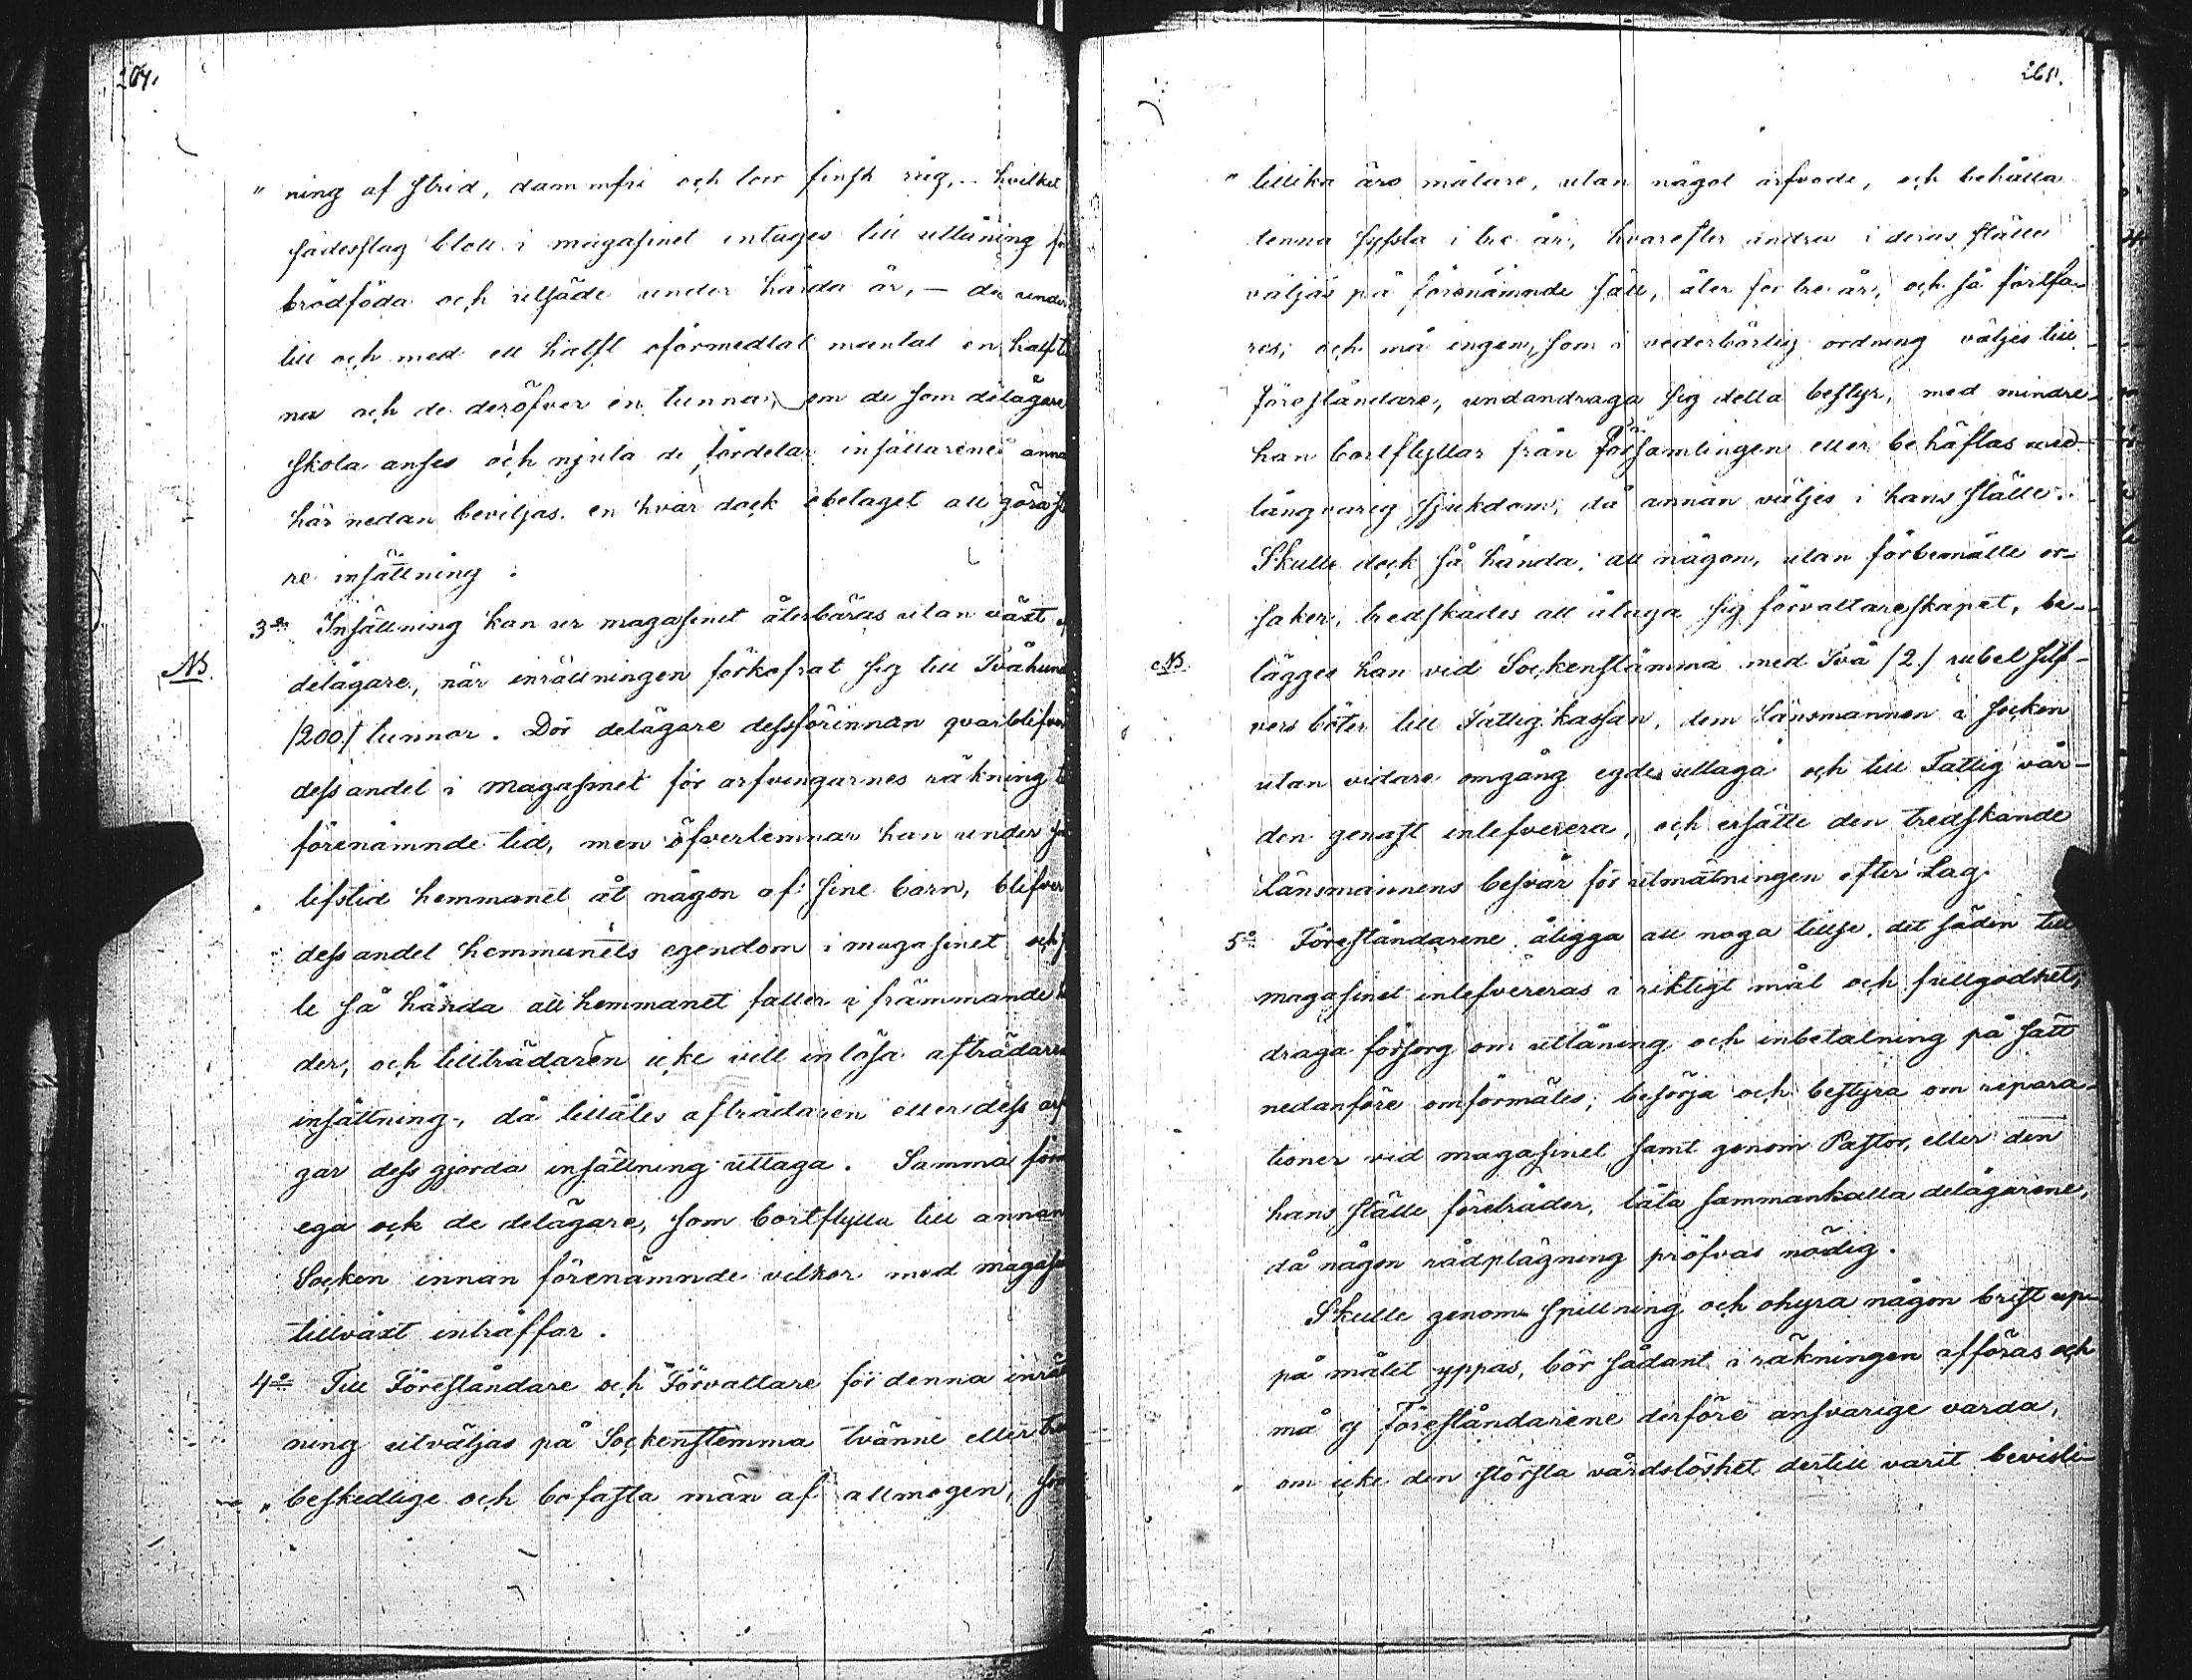 264.
" ning af strid, dammfri och torr finsk råg, – hvilket
sädesslag blott i magasinet intages till utlåning
brödföda och utsäde under hårda år, – de under
till och med ett halft oförmedlat mantal en half
na och de deröfver en tunna, om de som delägare
skola anses och njuta de fördelar insättarene
här nedan beviljas. en hvar dock obetaget att göra
re insättning.
3o Insättning kan ur magasinet återbäras utan växt
NB.
delägare, när inrättningen förkofrat sig till Tvåhund
/200/ tunnor. Dör delägare dessförinnan qvarblifver
dess andel i magasinet för arfvingarnes räkning
förenämnde tid, men öfverlemnar han under
lifstid hemmanet åt någon af sine barn, blifver
dess andel hemmanets egendom i magasinet och
le så hända att hemmanet faller i främmande
der, och tillträdaren icke vill inlösa afträdare
insättning, då tillåtes afträdaren eller dess arf
gar dess gjorda insättning uttaga. Samma
ega ock de delägare, som bortflytta till annan
Socken innan förenämnde vilkor med magasi
tillväxt inträffar.
4o Till Föreståndare och Förvaltare för denna inrät
ning utväljas på Sockenstemma tvänne eller
" beskedlige och bofasta män af allmogen, som
265.
" tillika äro mätare, utan något arfvode, och behålla
denna syssla i tre år, hvarefter andra i deras ställe
väljas på förenämnde sätt, åter för tre år, och så fortfa-
res; och må ingen, som i vederbörlig ordning väljes till
föreståndare, undandraga sig detta bestyr, med mindre
han bortflyttar från Församlingen eller behäftas med
långvarig sjukdom, då annan väljes i hans ställe.
Skulle dock så hända, att någon, utan förbemälte or-
saker, tredskades att åtaga sig förvaltareskapet, be-
NB.
lägges han vid Sockenstämma med Två /2/ rubel silf-
vers böter till Fattig kassan, dem Länsmannen i socken
utan vidare omgång egde uttaga och till Fattig vår-
den genast inlefverera, och ersätte den tredskande
Länsmannens besvär för utmätningen efter Lag.
5o Föreståndarene åligga att noga tillse, det säden till
magasinet inlefvereras i riktigt mål och fullgodhet,
draga försorg om utlåning och inbetalning på sätt
nedanföre omförmäles, besörja och bestyra om repara-
tioner vid magasinet, samt genom Pastor, eller den
hans ställe företräder, låta sammankalla delägarene,
då någon rådplägning pröfvas nödig.
Skulle genom spillning och ohyra någon brist up-
på målet yppas, bör sådant i räkningen afföras och
må ej Föreståndarene derföre ansvarige varda,
om icke den största vårdslöshet dertill varit bevisli-